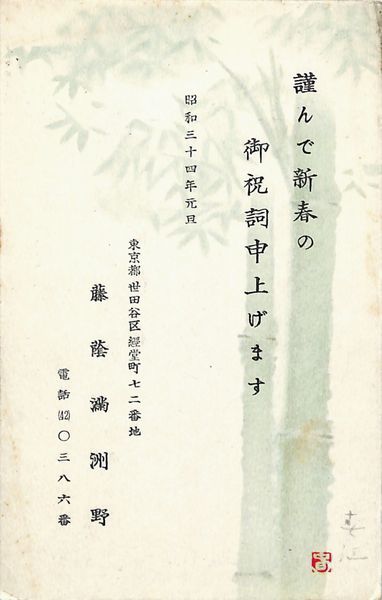 謹んで新春の
御祝詞申上げます
昭和三十四年元旦
東京都世田谷区経堂町七二番地
藤蔭満洲野
電話(42)〇三八六番